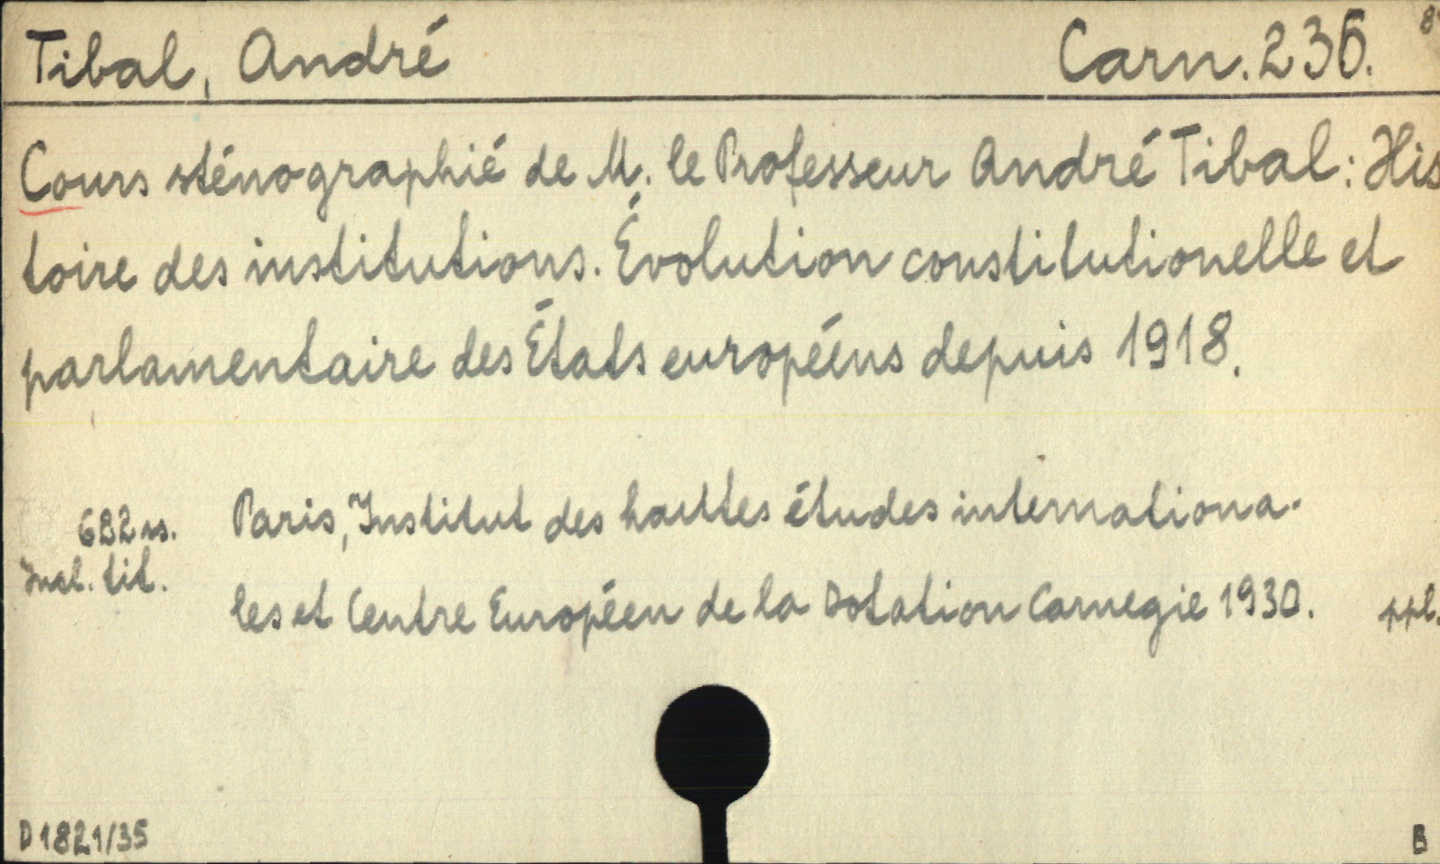 Tibal, André Carn. 236. 8°
Cours sténographié de M. le Professeur André Tibal: His
toire des institutions. Évolution constitutionelle et
parlamentaire des États européens depuis 1918.
682 ss. Paris, Institut des hauttes études internationa-
tit. les et Centre Européen de la Dotation Carnegie 1930. ppl.
D 1821/35 B